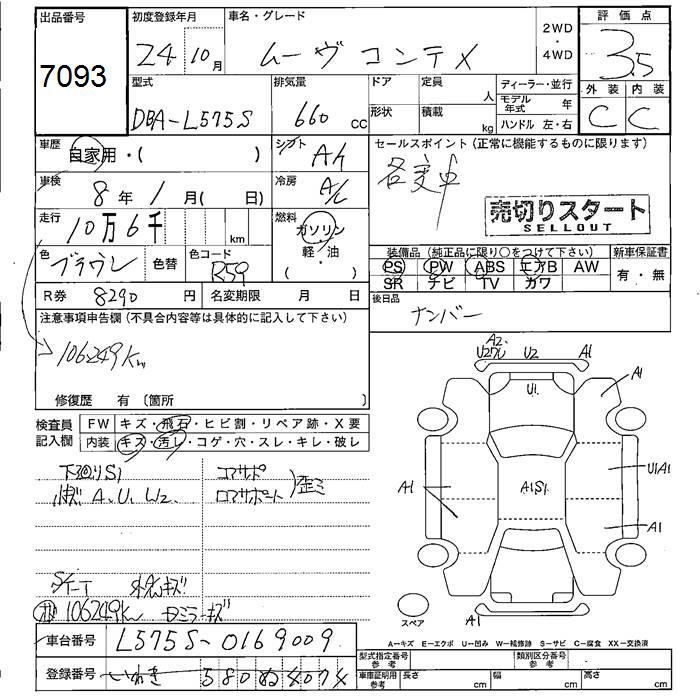 出品番号
7093
初度登録年月
24 10月
車名・グレード
ムーヴ コンテ X
2WD・4WD
評価点
3.5
外装 内装
C C
型式
DBA-L575S
排気量
660 cc
ドア
形状
定員 人
積載 kg
ディーラー・並行
モデル年式 年
ハンドル 左・右
車歴
自家用・( )
シフト
Ah
セールスポイント(正常に機能するものに限ります)
名変車
売切りスタート
SELLOUT
車検
8年 1月( 日)
冷房
A/C
走行
10万6千 km
燃料
ガソリン
軽・油
( )
色
ブラウン
色替
色コード
R59
装備品(純正品に限り○をつけて下さい)
PS PW ABS エアB AW
SR ナビ TV カワ
新車保証書
有・無
R券 8290円
名変期限 月 日
後日品
ナンバー
注意事項申告欄(不具合内容等は具体的に記入して下さい)
106249Km
修復歴 有 〔箇所 〕
検査員記入欄
FW キズ・飛石・ヒビ割・リペア跡・X要
内装 キズ・汚レ・コゲ・穴・スレ・キレ・破レ
下回りS1
A.U.W2.
コアサポ
ロアサポート
歪ミ
106249Km
ドアミラーキズ
A2.
U2
A1
U1.
A1
A1
A1S1.
U1A1
A1
A1
スペア
A=キズ E=エクボ U=凹み W=補修跡 S=サビ C=腐食 XX=交換済
車台番号
L575S-0169009
登録番号
いわき 580 ぬ 4074
型式指定番号 参考
類別区分番号 参考
車庫証明用 参考
長さ cm
幅 cm
高さ cm